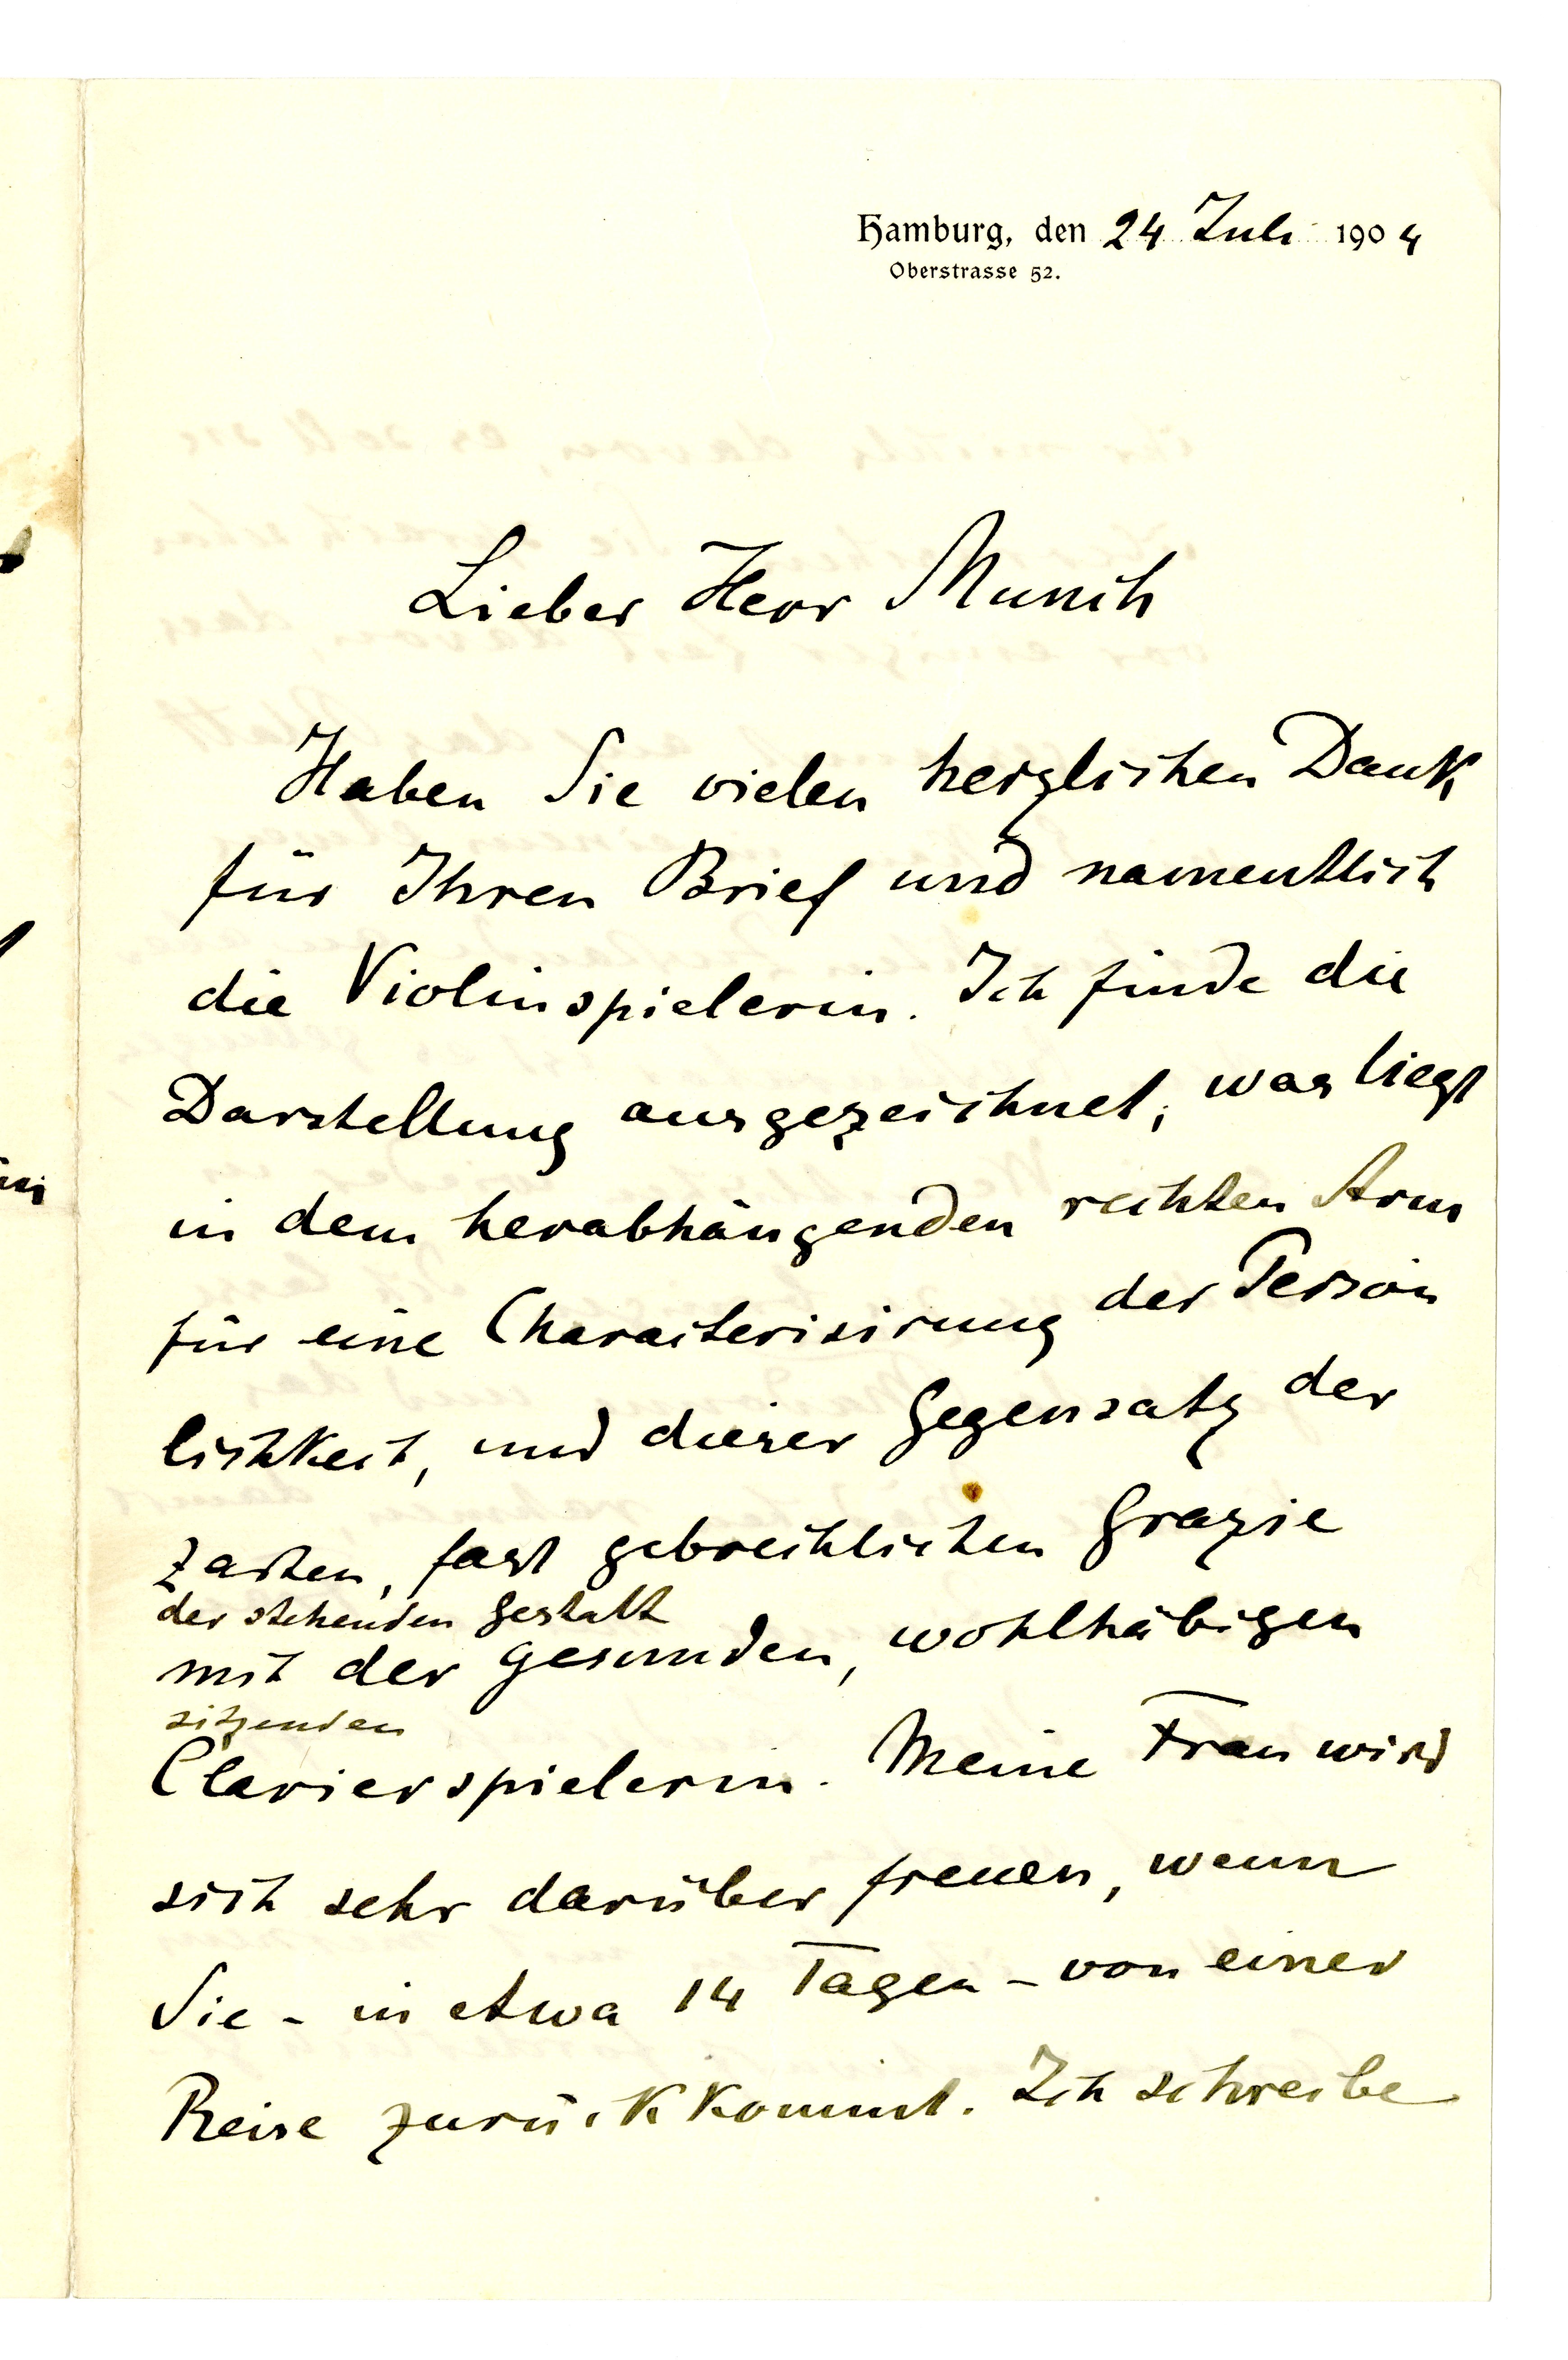 Hamburg, den 24 Juli 1904
Oberstrasse 52.
Lieber Herr Munch
Haben Sie vielen herzlichen Dank
für Ihren Brief und namentlich
die Violinspielerin. Ich finde die
Darstellung ausgezeichnet; was liegt
in dem herabhängenden rechten Arm
für eine Characterisirung der Persön
lichkeit, und dieser Gegensatz der
zarten, fast gebrechlichen Grazie
der stehenden Gestalt
mit der gesunden, wohlhäbigen
sitzenden
Clavierspielerin. Meine Frau wird
sich sehr darüber freuen, wenn
Sie - in etwa 14 Tagen - von einer
Reise zurückkommt. Ich schreibe